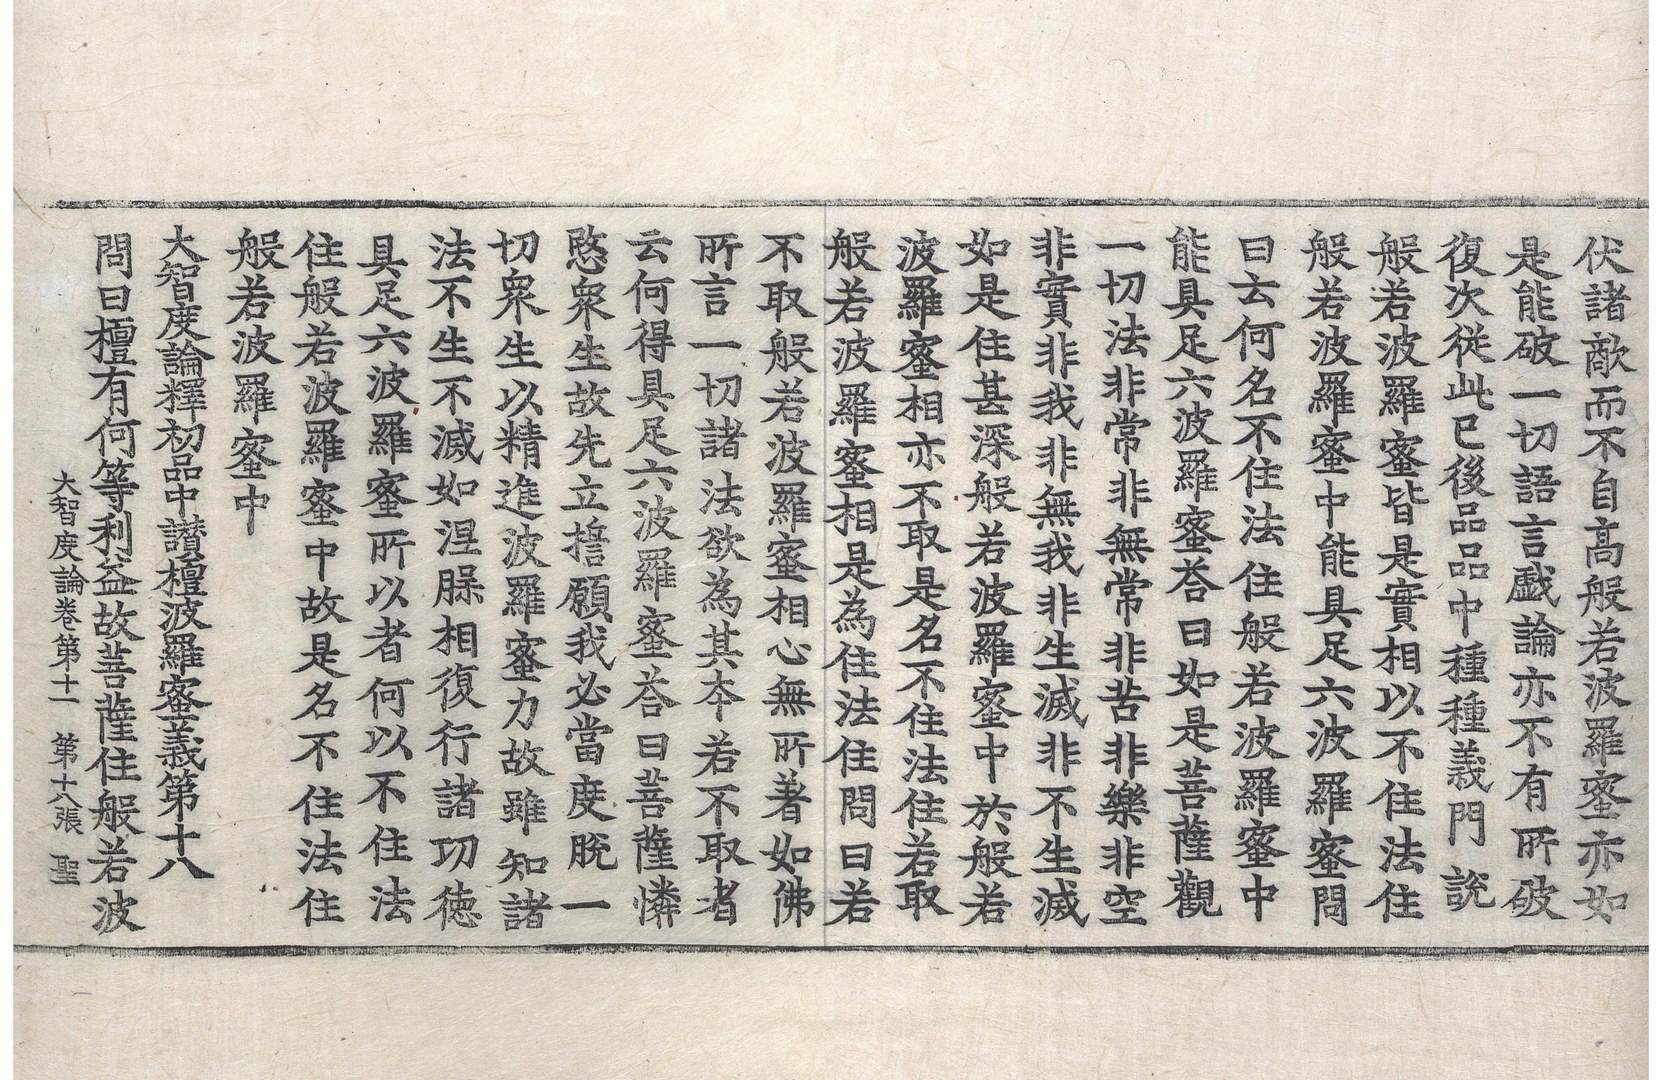 伏諸敵而不自高般若波羅蜜亦如
是能破一切語言戱論亦不有所破
復次從此已後品品中種種義門說
般若波羅蜜皆是實相以不住法住
般若波羅蜜中能具足六波羅蜜問
曰云何名不住法住般若波羅蜜中
能具足六波羅蜜荅曰如是菩薩觀
一切法非常非無常非苦非樂非空
非實非我非無我非生滅非不生滅
如是住甚深般若波羅蜜中於般若
波羅蜜相亦不取是名不住法住若取
般若波羅蜜相是為住法住問曰若
不取般若波羅蜜相心無所著如佛
所言一切諸法欲為其夲若不取者
云何得具足六波羅蜜荅曰菩薩憐
愍衆生故先立擔願我必當度脫一
切衆生以精進波羅蜜力故雖知諸
法不生不滅如涅𦠆相復行諸功德
具足六波羅蜜所以者何以不住法
住般若波羅蜜中故是名不住法住
般若波羅蜜中
大智度論釋初品中讃檀波羅蜜義第十八
問曰檀有何等利益故菩薩住般若波
大智度論卷第十一 第十八張 聖